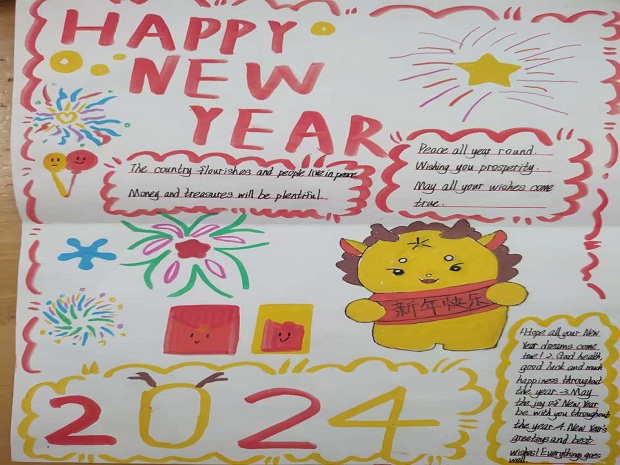 HAPPY
NEW
YEAR
The country flourishes and people live in peace
Money and treasures will be plentiful.
Peace all year round.
Wishing you prosperity.
May all your wishes come
true.
新年快乐
1.Hope all your New
Year dreams come
true! 2. Glad health,
good luck and much
happiness throughout
the year 3. May
the joy of New Year
be with you throughout
the year 4. New Year's
greetings and best
wishes! Everything goes
well.
2024